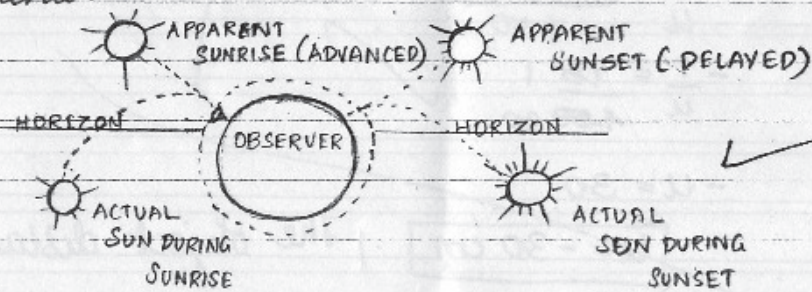 APPARENT
SUNRISE (ADVANCED)
APPARENT
SUNSET (DELAYED)
HORIZON
OBSERVER
HORIZON
ACTUAL
SUN DURING
SUNRISE
ACTUAL
SUN DURING
SUNSET
- u = 30